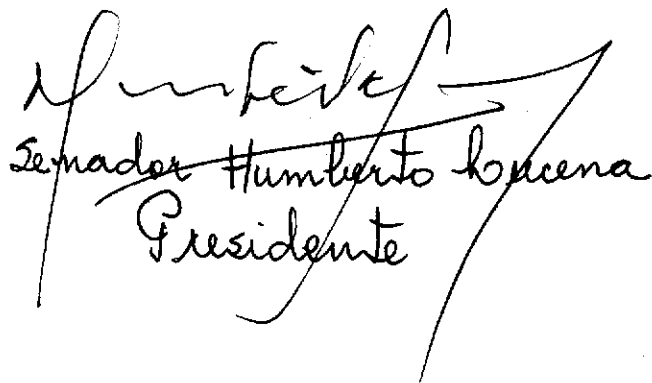 Senador Humberto Lucena
Presidente